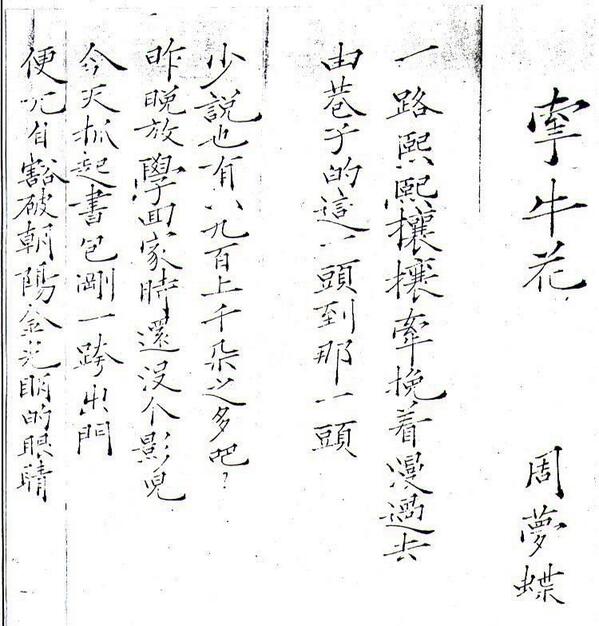 牽牛花
周夢蝶
一路熙熙攘攘牽挽着漫過去
由巷子的這一頭到那一頭
少說也有八九百上千朵之多吧？
昨晚放學回家時還没个影兒
今天抓起書包剛一跨出門
便兀自豁破朝陽金光明的眼睛